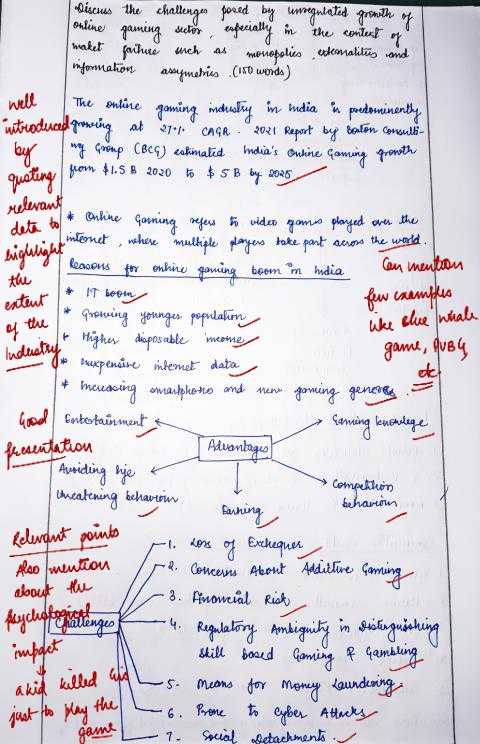 Discuss the challenges posed by unregulated growth of
online gaming sector, especially in the context of
market failure such as monopolies, externalities and
information assymetries. (150 words)
well
introduced
by
quoting
relevant
data to
highlight
the
extent
of the
Industry
The online gaming industry in India is predominently
growing at 27.1. CAGR. 2021 Report by Boston Consulti-
ng Group (BCG) estimated India's Online Gaming growth
from $1.5 B 2020 to $ 5 B by 2025
* Online Gaming refers to video games played over the
internet, where multiple players take part across the world.
Reasons for online gaming boom in India
* IT boom
* Growing younger population
* Higher disposable income
* Inexpensive internet data
* Increasing smartphones and new gaming generes.
Can mention
few examples
like Blue whale
game, PUBG,
etc
Good
presentation
Advantages
Entertainment
Gaming knowlege
Avoiding life
threatening behaviour
Earning
Competition
behaviour
Relevant points
Also mention
about the
psychological
impact
a kid killed
just to play the
game
Challenges
1. Loss of Exchequer
2. Concerns About Addictive Gaming
3. Financial Risk
4. Regulatory Ambiguity in Distinguishing
skill based Gaming & Gambling
5. Means for Money Laundering
6. Prone to Cyber Attacks
7. Social Detachments.